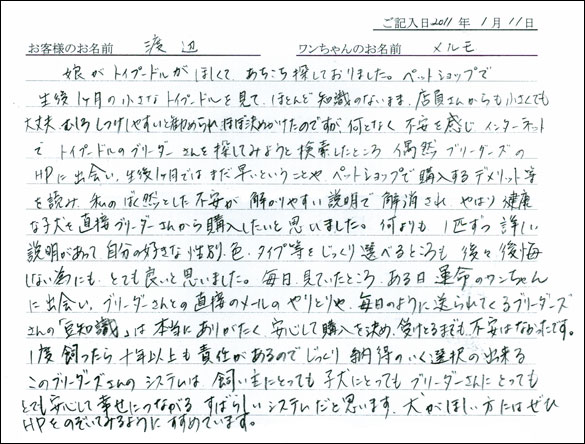 ご記入日2011年 1月11日
お客様のお名前 渡辺 ワンちゃんのお名前 メルモ
娘がトイプードルがほしくて あちこち探しておりました。ペットショップで
生後1ヶ月の小さなトイプードルを見て、ほとんど知識のないまま、店員さんからも小さくても
大丈夫、むしろしつけしやすいと勧められほぼ決めかけたのですが、何となく不安を感じ インターネット
で トイプードルのブリーダーさんを探してみようと検索したところ 偶然 ブリーダーズの
HPに出会い、生後1ヶ月ではまだ早いということや ペットショップで購入するデメリット等
を読み、私のばく然とした不安が 解かりやすい説明で解消され、やはり健康
な子犬を直接ブリーダーさんから購入したいと思いました。何よりも 1匹ずつ詳しい
説明があって自分の好きな性別、色、タイプ等をじっくり選べるところも 後々後悔
しない為にも、とても良いと思いました。毎日見ていたところ、ある日運命のワンちゃん
に出会い、ブリーダーさんとの直接のメールのやりとりや、毎日のように送られてくるブリーダーズ
さんの「豆知識」は本当にありがたく 安心して購入を決め、受けとるまでも、不安はなかったです。
1度飼ったら十年以上も責任があるのでじっくり納得のいく選択の出来る
このブリーダーズさんのシステムは、飼い主にとっても子犬にとってもブリーダーさんにとっても
とても安心して幸せにつながる すばらしいシステムだと思います。犬がほしい方にはぜひ
HPをのぞいてみるようにすすめています。